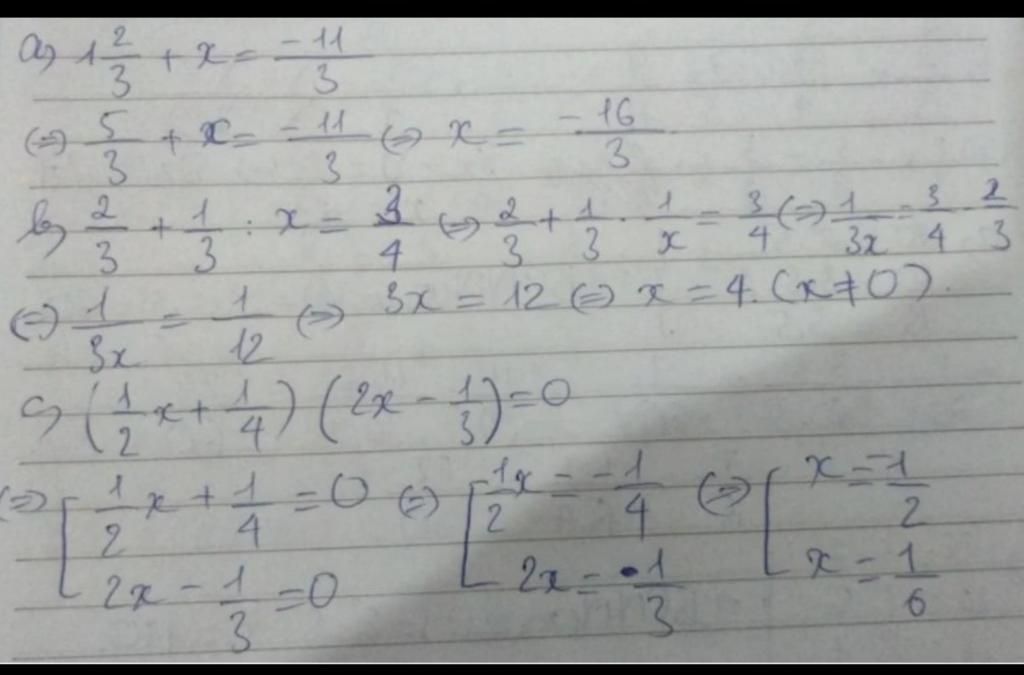 a) 1 2/3 + x = -11/3
(=) 5/3 + x = -11/3 (=) x = -16/3
b) 2/3 + 1/3 : x = 3/4 (=) 2/3 + 1/3 . 1/x = 3/4 (=) 1/3x = 3/4 - 2/3
(=) 1/3x = 1/12 (=) 3x = 12 (=) x = 4. (x ≠ 0).
c) (1/2 x + 1/4) (2x - 1/3) = 0
(=) [ 1/2 x + 1/4 = 0 (=) [ 1/2 x = -1/4 (=) [ x = -1/2
2x - 1/3 = 0 2x = 1/3 x = 1/6